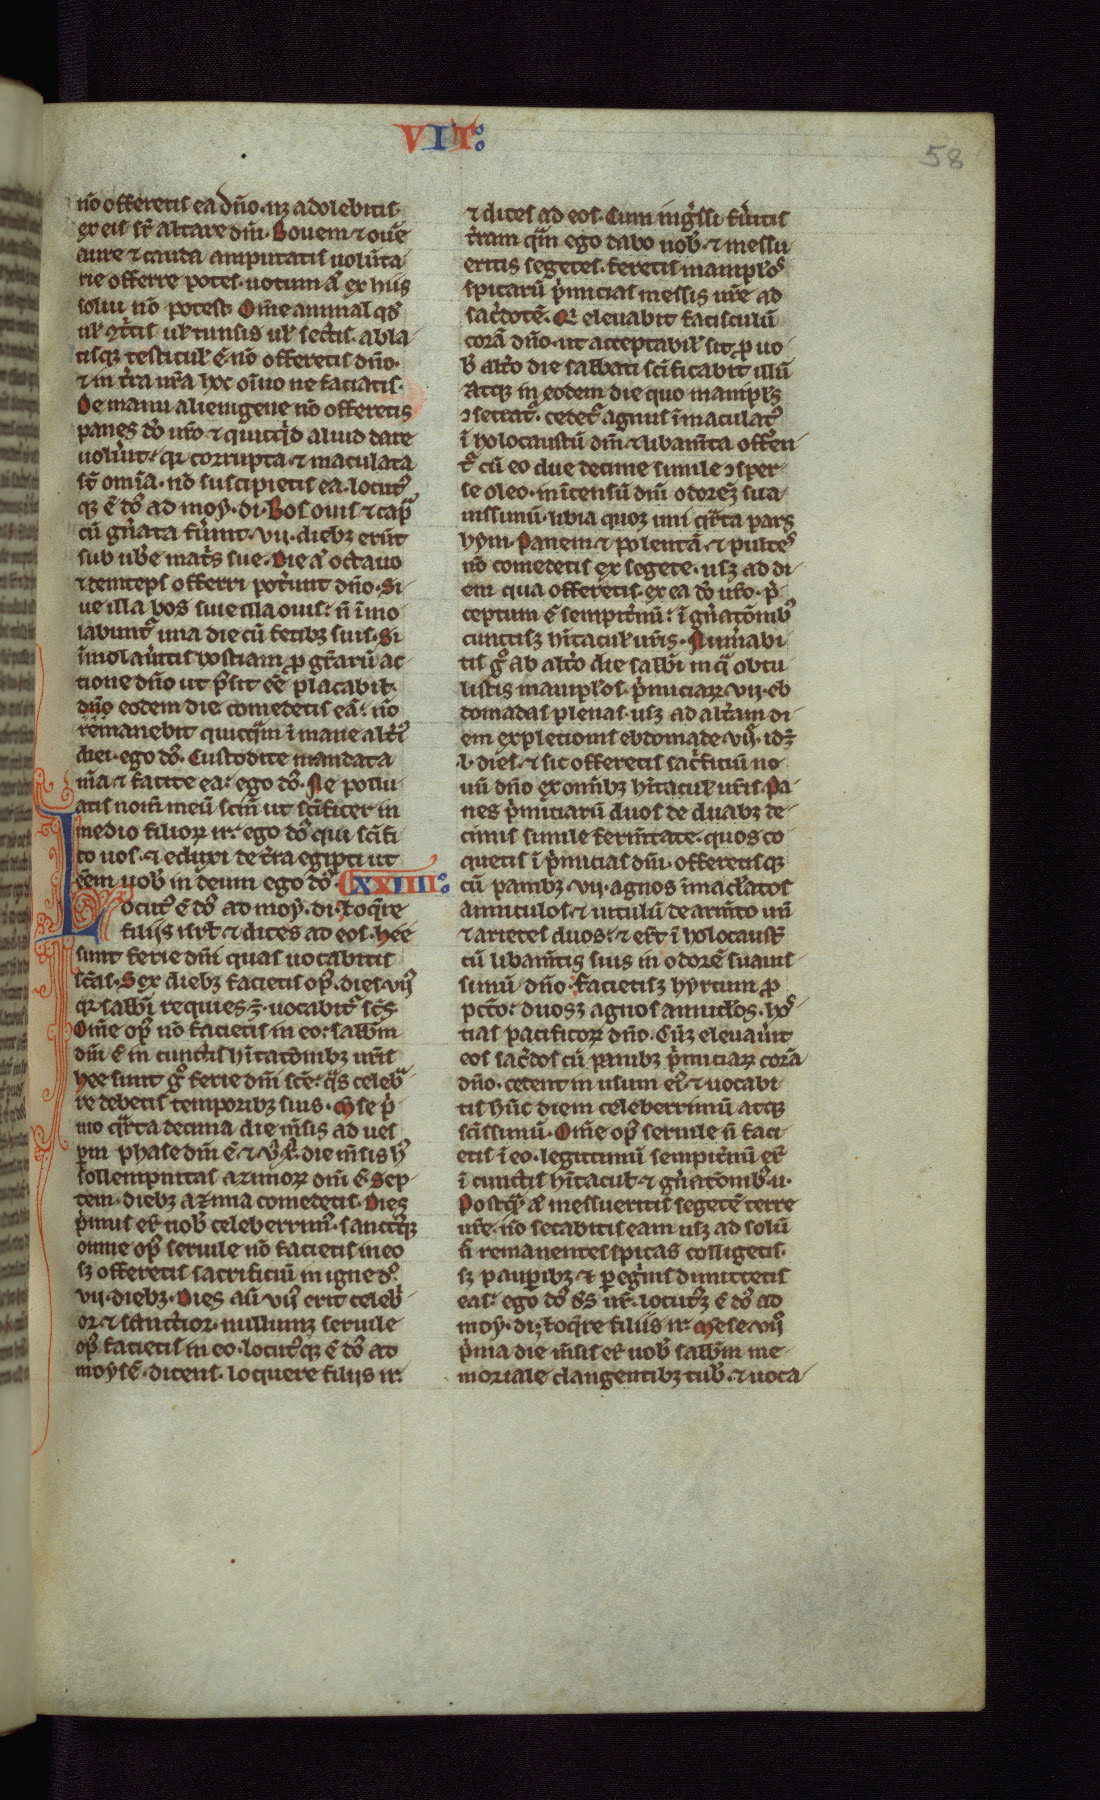 VIT:
58
nō offeretis ea dño. nꝫ adolebitis
ex eis sr̄ altare dñi. Bovem ⁊ ouē
aure ⁊ cauda amputatis uolūta
rie offerre potes. uotum aͥ ex hiis
solui nō potest. Om̄e animal qd̓
ul̓ ꝯtͥtis ul̓ tunsis ul̓ sectis. abla
tisqꝫ testicul̓ ē. nō offeretis dño.
⁊ in tr̄a ur̄a hoc oīuo ne faciatis.
De manu alienigene nō offeretis
panes dō uro ⁊ quicqͥd aliud dare
uoluīt. qꝛ corrupta ⁊ maculata
sūt om̄ia. nō suscipietis ea. locutꝰ
qꝫ ē dō̓s ad moy. di. Bos ouis ⁊ capͣ
cū gn̄ata fūint. vii. diebꝫ erūt
sub ub̓e matͥs sue. Die aͥ octauo
⁊ deinceps offerri pot̓unt dño. Si
ue illa bos siue illa ouis: ñ īmo
labuntͬ una die cū fetibꝫ suis. Si
īmolau̓itis hostiam ꝓ gr̄arū ac
tione dño ut p̓sit eē placabil̓.
dño eodem die comedetis eā: nō
remanebit quicqͣm ī mane alt̓i
diei. ego dō̓s. Custodite mandata
m̄a ⁊ facite ea: ego dō̓s. Ne pollu
atis nom̄ meū scm̄ ut sc̄ificer in
medio filioꝝ ir̄. ego dō̓s qui sc̄ifi
co uos. ⁊ eduxi de tr̄a egipti ut
eēm uob̓ in deum ego dō̓s. CXXIIII:
Locutꝰ ē dō̓s ad moy. di. loqͤre
filiis isrl̓ ⁊ dices ad eos. hee
sunt ferie dñi quas uocabitis
sc̄as. Sex diebꝫ facietis opꝰ. dies vijͦ
qꝛ sabb̄i requies ē. uocabitͬ sc̄s
Om̄e opꝰ nō facietis in eo: sabbm̄
dñi ē in cunctis hītatōnibꝫ ur̄is
hee sunt gͦ ferie dñi sc̄e: qͣs celebͣ
re debetis temporibꝫ suis. Mēse pͥ
mo qͣrta decima die m̄sis ad ues
pm̄ phase dñi ē. ⁊ xͦvͦ. die m̄sis hꝰ
sollempnitas azimoꝝ dñi ē. Sep
tem diebꝫ azima comedetis. Dies
pͥmus er̄ uob̓ celeberrimꝰ. sanctꝰqꝫ
omne opꝰ seruile nō facietis in eo
sꝫ offeretis sacrificiū in igne dō̓.
vii. diebꝫ. Dies aū vijͦ erit celeb̓
or ⁊ sanctior. nullumqꝫ seruile
opꝰ facietis in eo. locutꝰqꝫ ē dō̓s ad
moysē. dicens. loquere filijs ir̄.
⁊ dices ad eos. Cum ingͥssi fūitis
tr̄am qͣm ego dabo uob̓. ⁊ messu
eritis segetes. feretis manipl̓os
spicarū pͥmicias messis ur̄e ad
sac̓dotē. Qi eleuabit fasciculū
corā dño. ut acceptabil̓ sit ꝓ uo
b̓ alt̓o die sabbati sc̄ificabit illū
Atqꝫ in eodem die quo manipl̓s
ꝯsecratͬ. cedetͬ agnus īmaculatꝰ
ī holocaustū dñi. ⁊ libam̄ta offer̄n
tͬ cū eo due decime simile ꝯsper
se oleo. in incensū dñi odorēqꝫ sua
uissimū. libia quoqꝫ uini qͣrta pars
hyn. Panem ⁊ polentā. ⁊ pultes
nō comedetis ex segete. usqꝫ ad di
em qua offeretis. ex ea dō uro. pͤ
ceptum ē sempit̓nū: ī gn̄atōnibꝰ
cunctisqꝫ hītacul̓ ur̄is. Num̄abi
tis gͦ ab alt̓o die sabb̄i in qͣ obtu
listis manipl̓os pͥmiciaꝝ. vij. eb
domadas plenas. usqꝫ ad alt̓am di
em expletionis ebdomade vijͤ. idꝫ
l. dies. ⁊ sic offeretis sac̓ficiū no
uū dño ex om̄ibꝫ hītacul̓ ur̄is. Pa
nes pͥmiciarū duos de duabꝫ de
cimis simile ferm̄tate. quos co
quetis ī pͥmicias dñi. offeretisqꝫ
cū panibꝫ. vij. agnos īmacl̓atos
anniculos. ⁊ uitulū de arm̄to unū
⁊ arietes duos: ⁊ erūt ī holocaust̓
cū libam̄tis suis in odorē suauis
simū dño. Facietisqꝫ hyrcum ꝓ
pctō: duosqꝫ agnos annicl̓os. hos
tias pacificoꝝ dño. Cūqꝫ eleuau̓it
eos sac̓dos cū panibꝫ pͥmiciaꝝ corā
dño. cedent in usum eiꝰ. ⁊ uocabi
tis hūc diem celeberrimū atqꝫ
sc̄issimū. Om̄e opꝰ seruile ñ faci
etis ī eo. legittimū sempit̓nū er̄
ī cunctis hītacul̓ ⁊ gn̄atōnibꝰ u.
Postqͣ aͥ messueritis segetē terre
ur̄e. nō secabitis eam usqꝫ ad solū
ñ remanentes spicas colligetis.
sꝫ paupibꝫ ⁊ pegͥnis dimittetis
eas: ego dō̓s ds̄ ur̄. locutꝰqꝫ ē dō̓s ad
moy. di. loqͤre filiis ir̄. Mēse vijͦ
pͥma die m̄sis er̄ uob̓ sabbm̄ me
moriale clangentibꝫ tub̓. ⁊ uoca